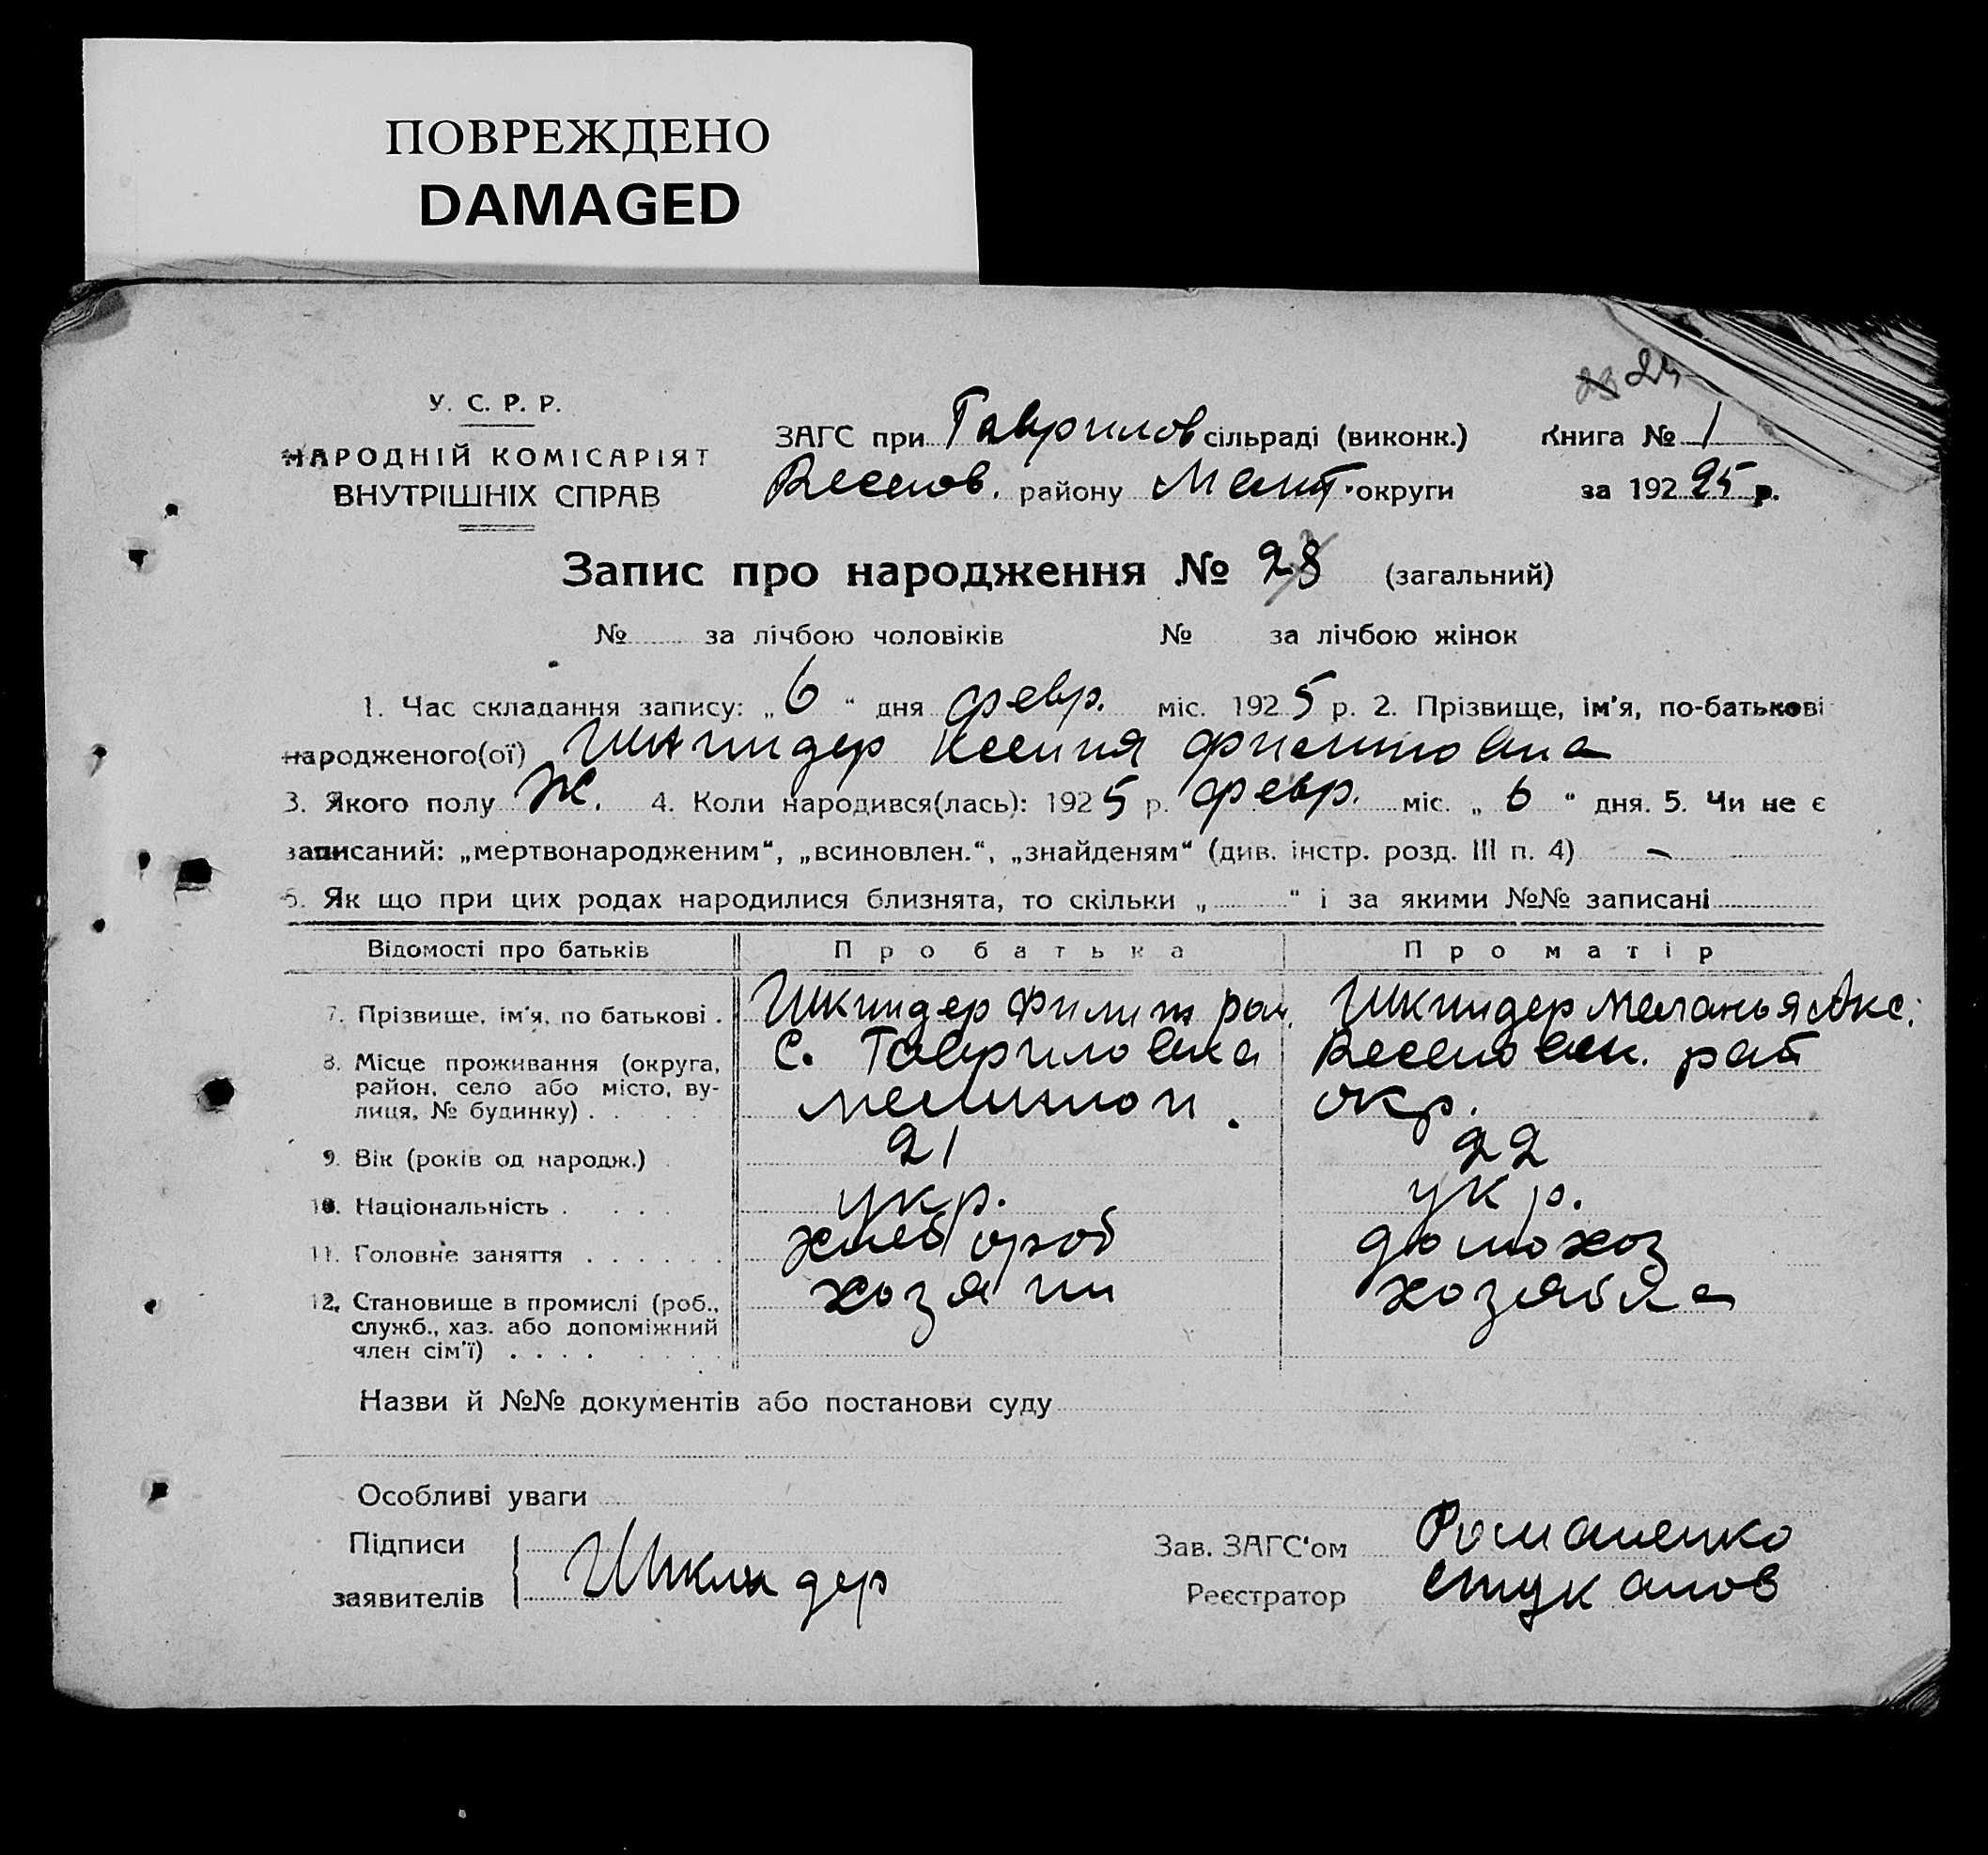 ПОВРЕЖДЕНО
DAMAGED
24
У. С. Р. Р.
НАРОДНІЙ КОМІСАРІЯТ
ВНУТРІШНІХ СПРАВ
ЗАГС при Гаврилов сільраді (виконк.) Книга № 1
Веселов. району Мелит. округи за 192 25 р.
Запис про народження № 28 (загальний)
№ за лічбою чоловіків № за лічбою жінок
1. Час складання запису: „ 6 “ дня февр. міс. 192 5 р. 2. Прізвище, ім'я, по-батькові
народженого(ої) Шкиндер Ксения Филиповна
3. Якого полу Ж. 4. Коли народився(лась): 192 5 р. февр. міс. „ 6 “ дня. 5. Чи не є
записаний: „мертвонародженим“, „всиновлен.“, „знайденям“ (див. інстр. розд. III п. 4) –
6. Як що при цих родах народилися близнята, то скільки „ “ і за якими №№ записані
Відомості про батьків Про батька Про матір
7. Прізвище, ім'я, по батькові . Шкиндер Филип Шкиндер Меланья Акс.
8. Місце проживання (округа, с. Гавриловка Веселовск. рай
район, село або місто, ву-
лиця, № будинку) . Мелитоп. окр.
9. Вік (років од народж.) 21 22
10. Національність . укр. укр.
11. Головне заняття . хлебороб домохоз
12. Становище в промислі (роб., хозяин хозяйка
служб., хаз. або допоміжний
член сім'ї) . . . .
Назви й №№ документів або постанови суду
Особливі уваги
Підписи Зав. ЗАГС'ом Романенко
заявителів Шкиндер Реєстратор Стуканов